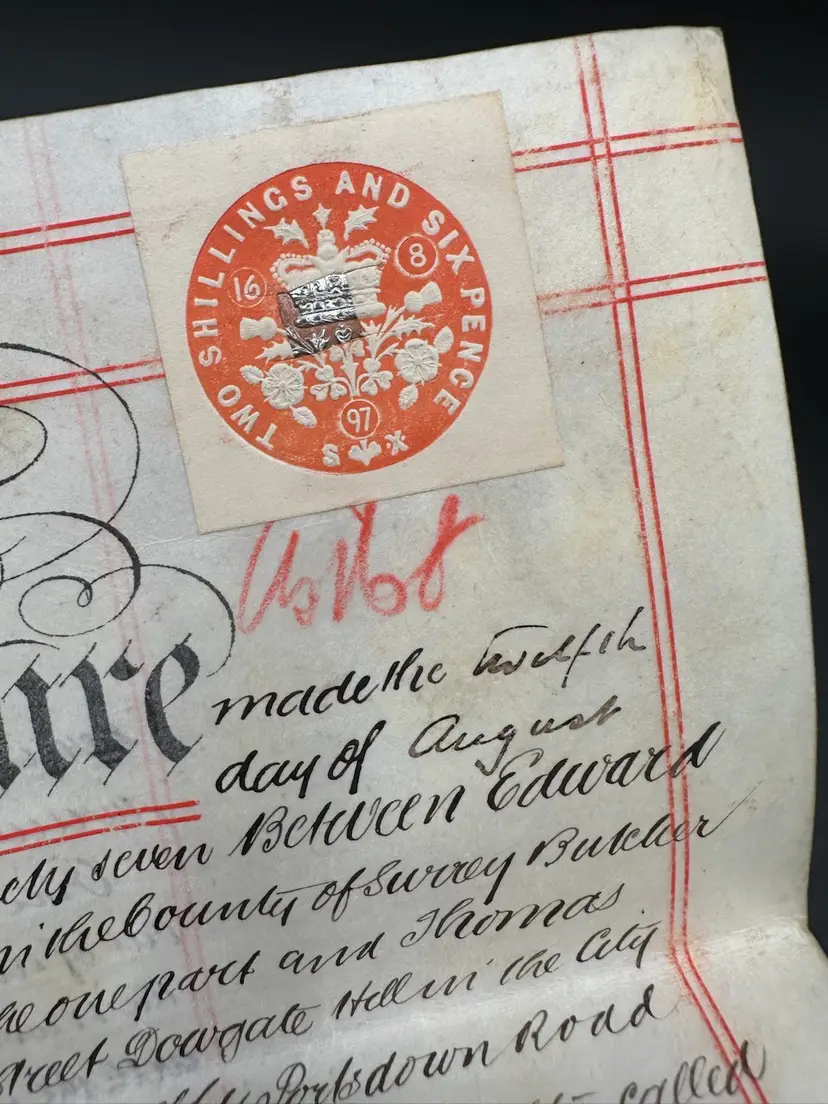 TWO SHILLINGS AND SIX PENCE
16 8
97
S X
ure made the twelfth
day of August
seven Between Edward
in the County of Surrey Butcher
one part and Thomas
Street Dowgate Hill in the City
Portsdown Road
called